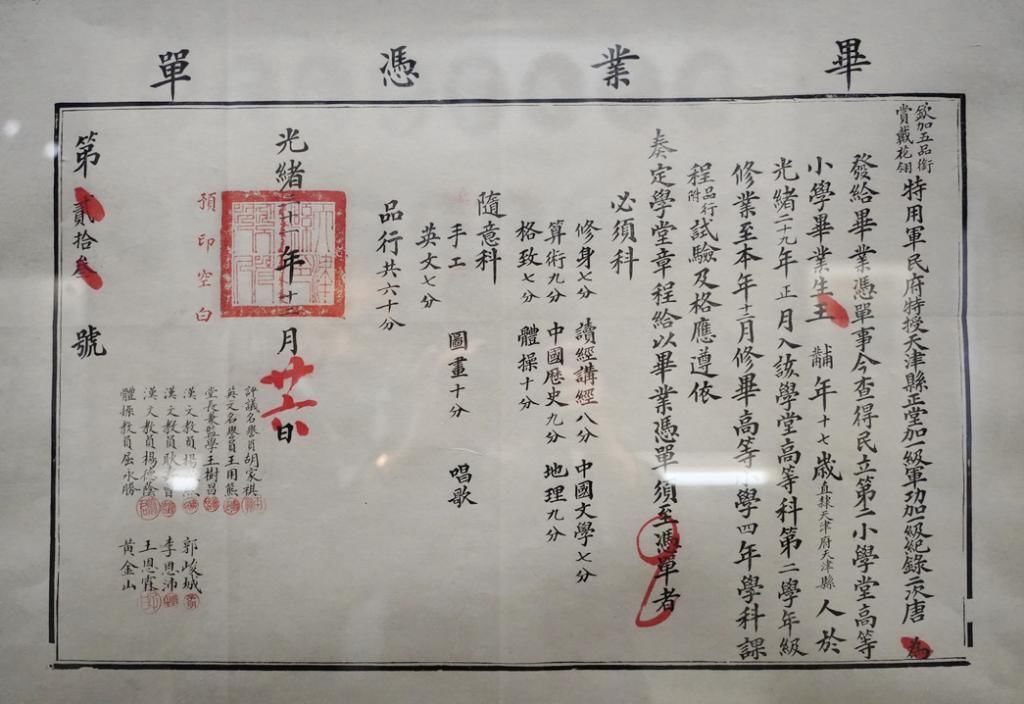 畢業憑單
欽加五品銜
賞戴花翎
特用軍民府特授天津縣正堂加一級軍功加一級紀錄二次唐 為
發給畢業憑單事今查得民立第二小學堂高等
小學畢業生王 年十七歲直隸天津府天津縣人於
光緒二十九年正月入該學堂高等科第二學年級
修業至本年十二月修畢高等小學四年學科課
程品行附試驗及格應遵依
奏定學堂章程給以畢業憑單須至憑單者
必須科
修身七分 讀經講經八分 中國文學七分
算術九分 中國歷史九分 地理九分
格致七分 體操十分
隨意科
手工 圖畫十分 唱歌
英文七分
品行共六十分
光緒三十一年十二月廿六日
預印空白
評議名譽員胡家祺
英文名譽員王用熊
堂長兼監學王樹昌
漢文教員楊 郭峻城
漢文教員耿 李恩沛
漢文教員楊修蔭 王恩霖
體操教員屈永勝 黃金山
第貳拾叁號